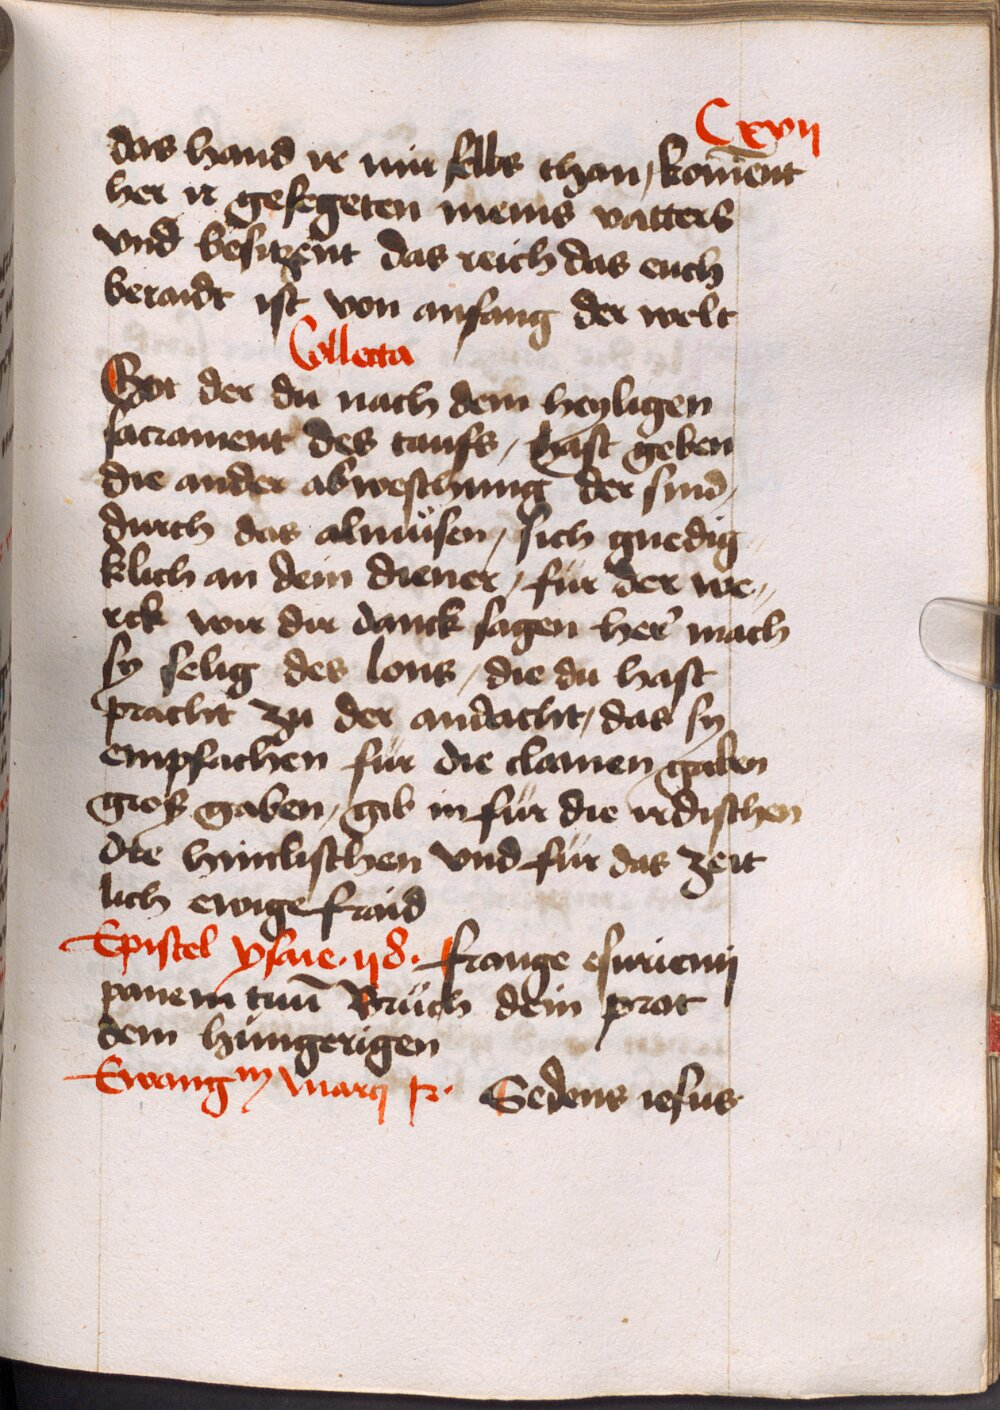 Cxvij
das hand ir mir selbs than, kom̄ent
her ir gesegeten meins vatters
vnd besitzent das reich das euch
beraidt ist von anfang der welt
Collecta
Got der du nach dem heyligen
sacrament des taufs, hast geben
die ander abweschung der sind,
durch das almüsen, sich gnedig
klich an dein diener, für der we„
rck wir dir danck sagen her mach
sy selig des lons, die du hast
pracht zu der andacht, das sy
empfachen für die clainen gaben
gros gaben, gib in für die irdischen
die himlischen vnd für das zeit
lich ewige fraid
Epistel ysaie. Frange esurienti
panem tuū Brüch dein prot
dem hüngerigen
Ewangm marci Sedens iesus